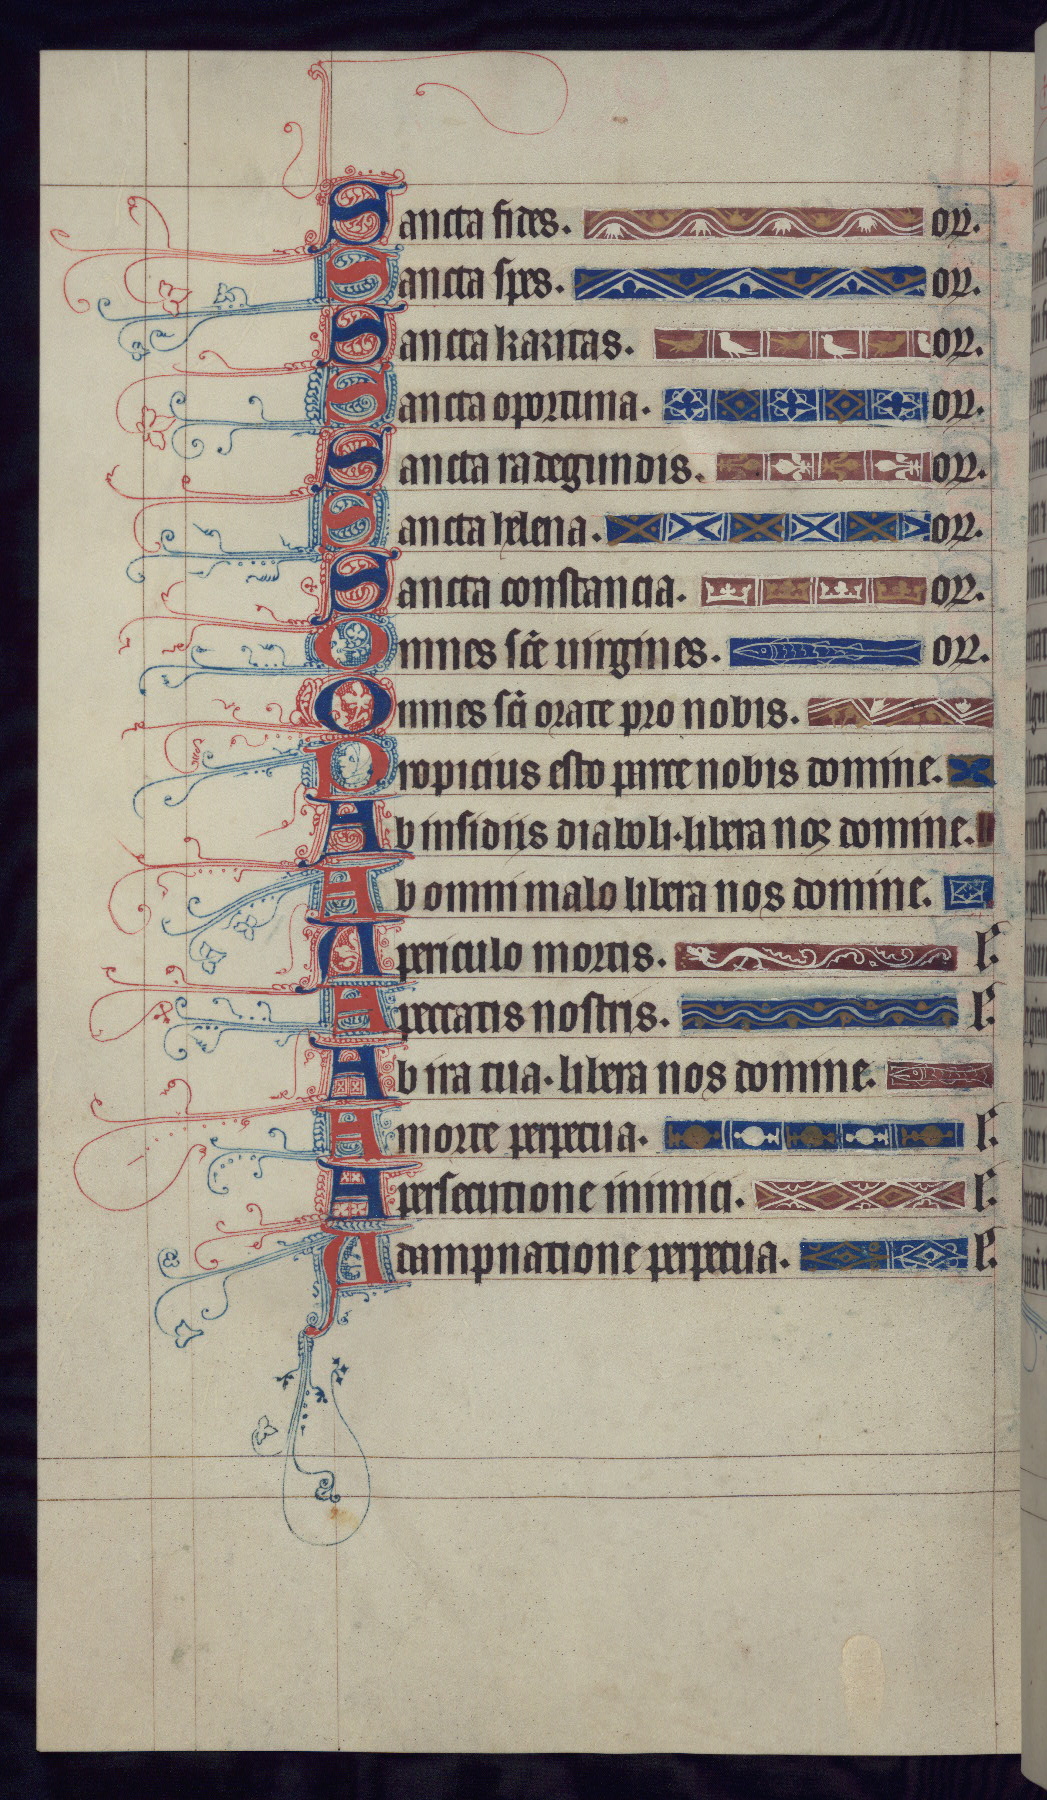 Sancta fides. or.
Sancta spes. or.
Sancta karitas. or.
Sancta oportuna. or.
Sancta radegundis. or.
Sancta helena. or.
Sancta constancia. or.
Omnes sc̄e uirgines. or.
Omnes sc̄i orate pro nobis.
Propicius esto parce nobis domine.
Ab insidiis diaboli. libera nos domine.
Ab omni malo libera nos domine.
A periculo mortis. l'.
A peccatis nostris. l'.
Ab ira tua. libera nos domine.
A morte perpetua. l'.
A persecutione inimici. l'.
A dampnatione perpetua. l'.